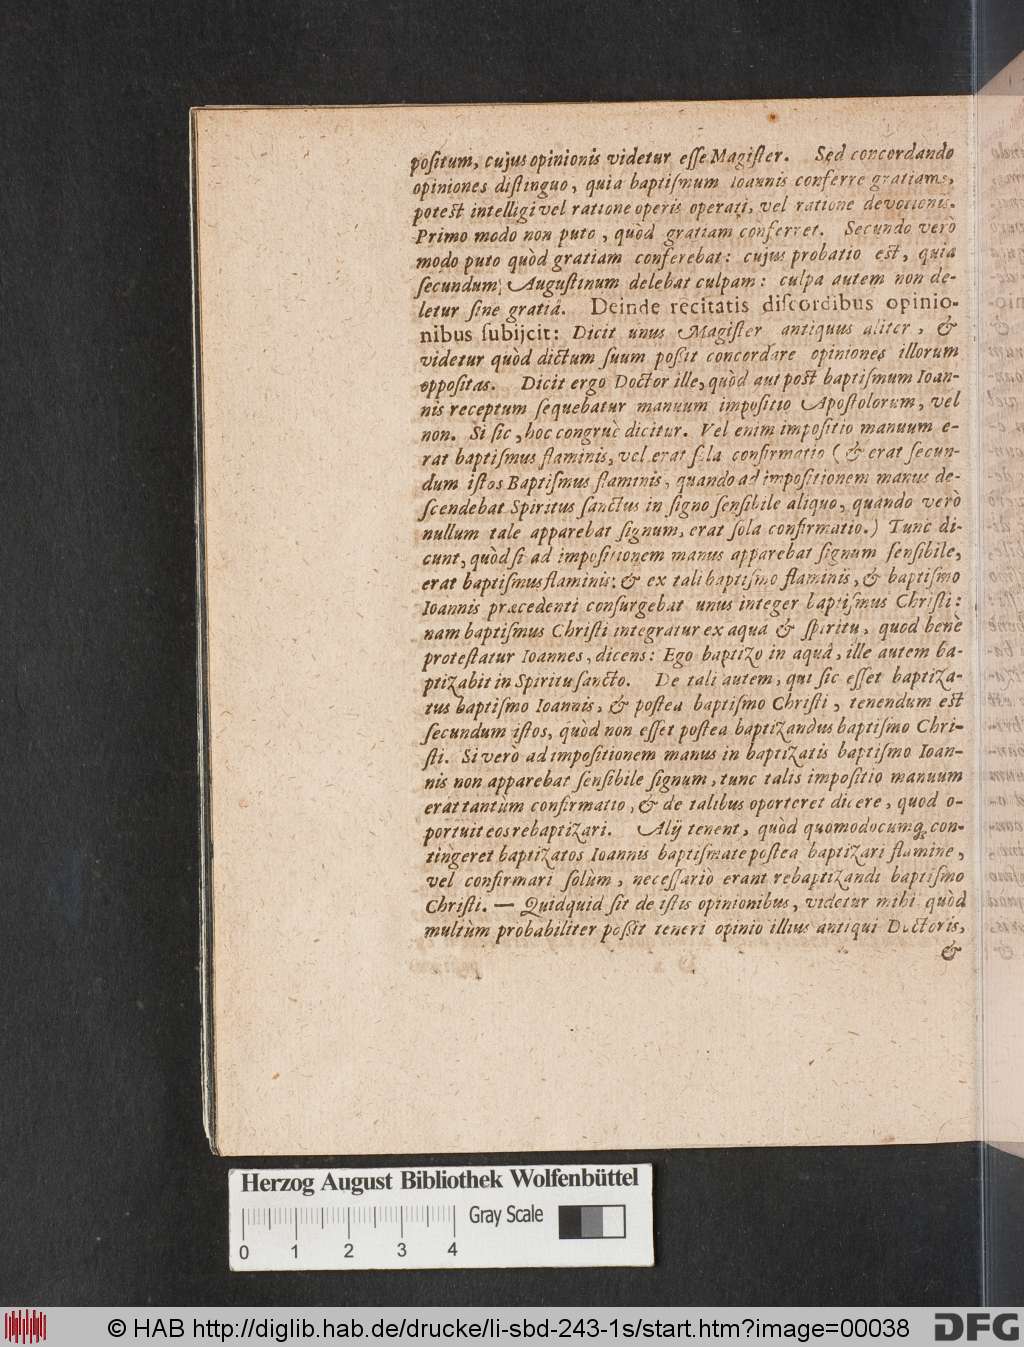 positum, cujus opinionis videtur esse Magister. Sed concordando
opiniones distinguo, quia baptismum Ioannis conferre gratiam,
potest intelligi vel ratione operis operati, vel ratione devotionis.
Primo modo non puto, quòd gratiam conferret. Secundo verò
modo puto quòd gratiam conferebat: cujus probatio est, quia
secundum Augustinum delebat culpam: culpa autem non de-
letur sine gratiâ. Deinde recitatis discordibus opinio-
nibus subijcit: Dicit unus Magister antiquus aliter, &
videtur quòd dictum suum possit concordare opiniones illorum
oppositas. Dicit ergo Doctor ille, quòd aut post baptismum Ioan-
nis receptum sequebatur manuum impositio Apostolorum, vel
non. Si sic, hoc congruè dicitur. Vel enim impositio manuum e-
rat baptismus flaminis, vel erat sola confirmatio (& erat secun-
dum istos Baptismus flaminis, quando ad impositionem manus de-
scendebat Spiritus sanctus in signo sensibile aliquo, quando verò
nullum tale apparebat signum, erat sola confirmatio.) Tunc di-
cunt, quòd si ad impositionem manus apparebat signum sensibile,
erat baptismus flaminis: & ex tali baptismo flaminis, & baptismo
Ioannis præcedenti consurgebat unus integer baptismus Christi:
nam baptismus Christi integratur ex aqua & spiritu, quod benè
protestatur Ioannes, dicens: Ego baptizo in aquâ, ille autem ba-
ptizabit in Spiritu sancto. De tali autem, qui sic esset baptiza-
tus baptismo Ioannis, & postea baptismo Christi, tenendum est
secundum istos, quòd non esset postea baptizandus baptismo Chri-
sti. Si verò ad impositionem manus in baptizatis baptismo Ioan-
nis non apparebat sensibile signum, tunc talis impositio manuum
erat tantùm confirmatio, & de talibus oporteret dicere, quod o-
portuit eos rebaptizari. Alij tenent, quòd quomodocumq; con-
tingeret baptizatos Ioannis baptismate postea baptizari flamine,
vel confirmari solùm, necessariò erant rebaptizandi baptismo
Christi. — Quidquid sit de istis opinionibus, videtur mihi quòd
multùm probabiliter possit teneri opinio illius antiqui Doctoris,
&
Herzog August Bibliothek Wolfenbüttel
Gray Scale
0 1 2 3 4
© HAB http://diglib.hab.de/drucke/li-sbd-243-1s/start.htm?image=00038
DFG